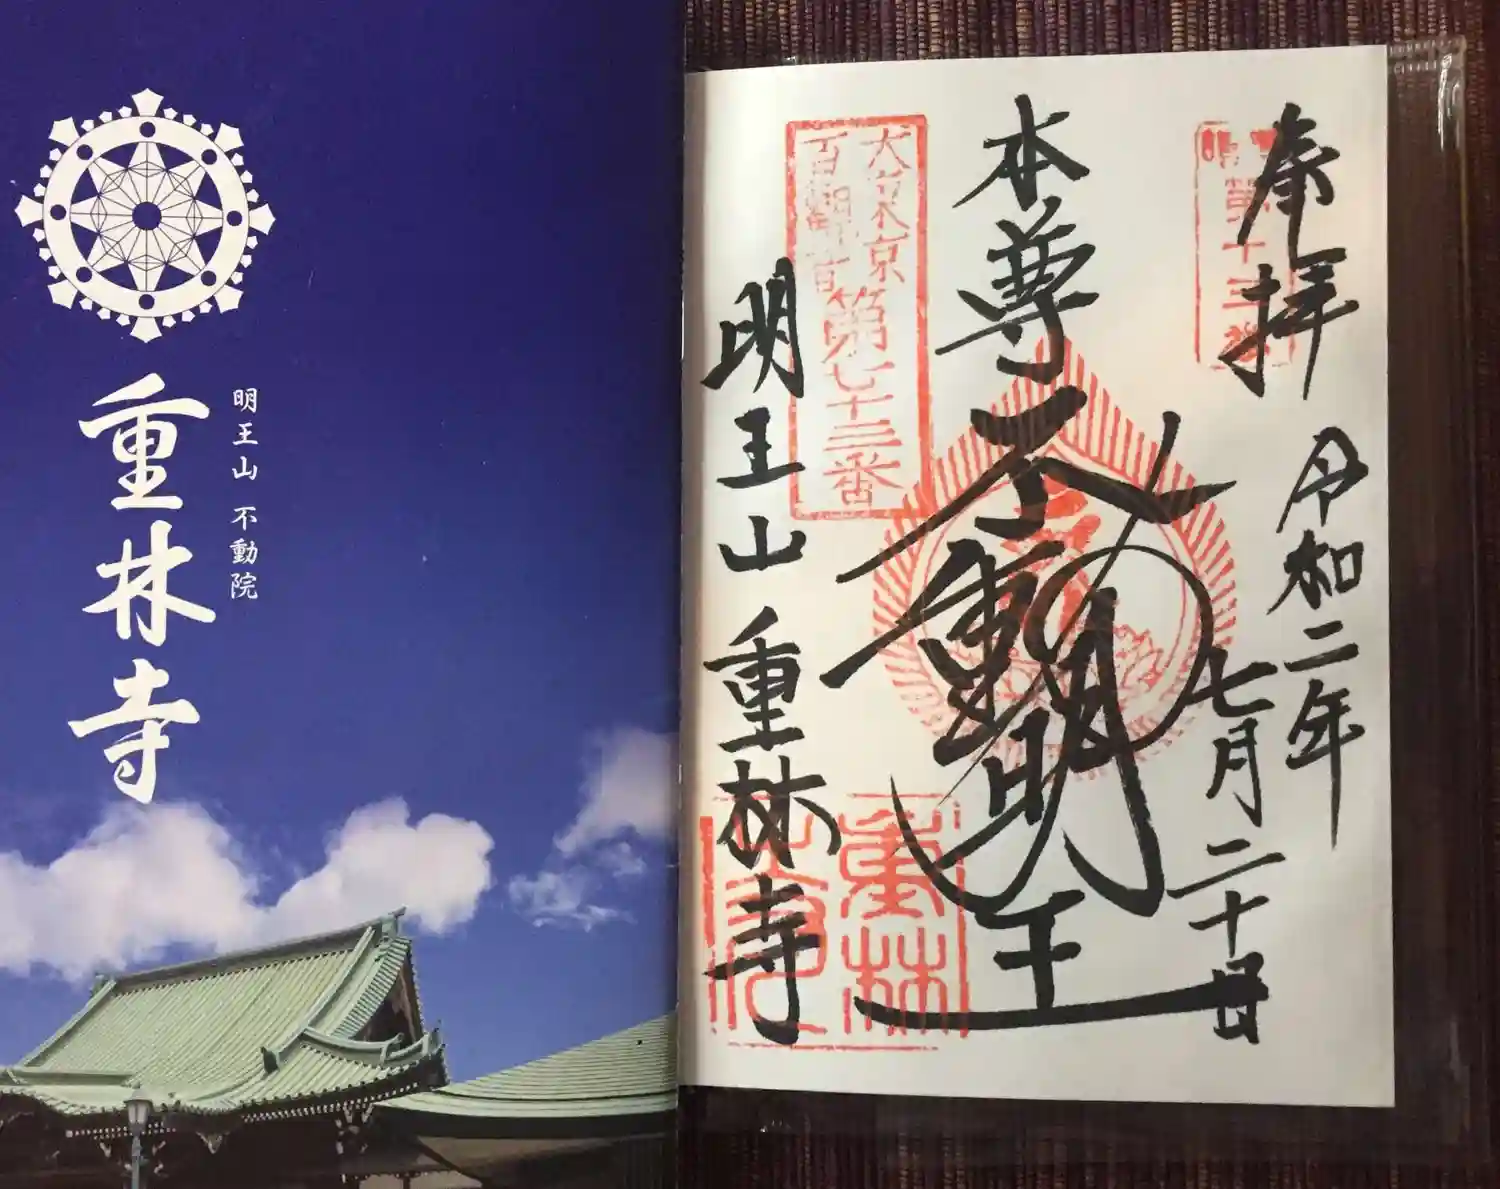 明王山 不動院
重林寺
奉拝
令和二年
七月二十四日
本尊不動明王
明王山重林寺
大東京
百観音
第七十三番
重林